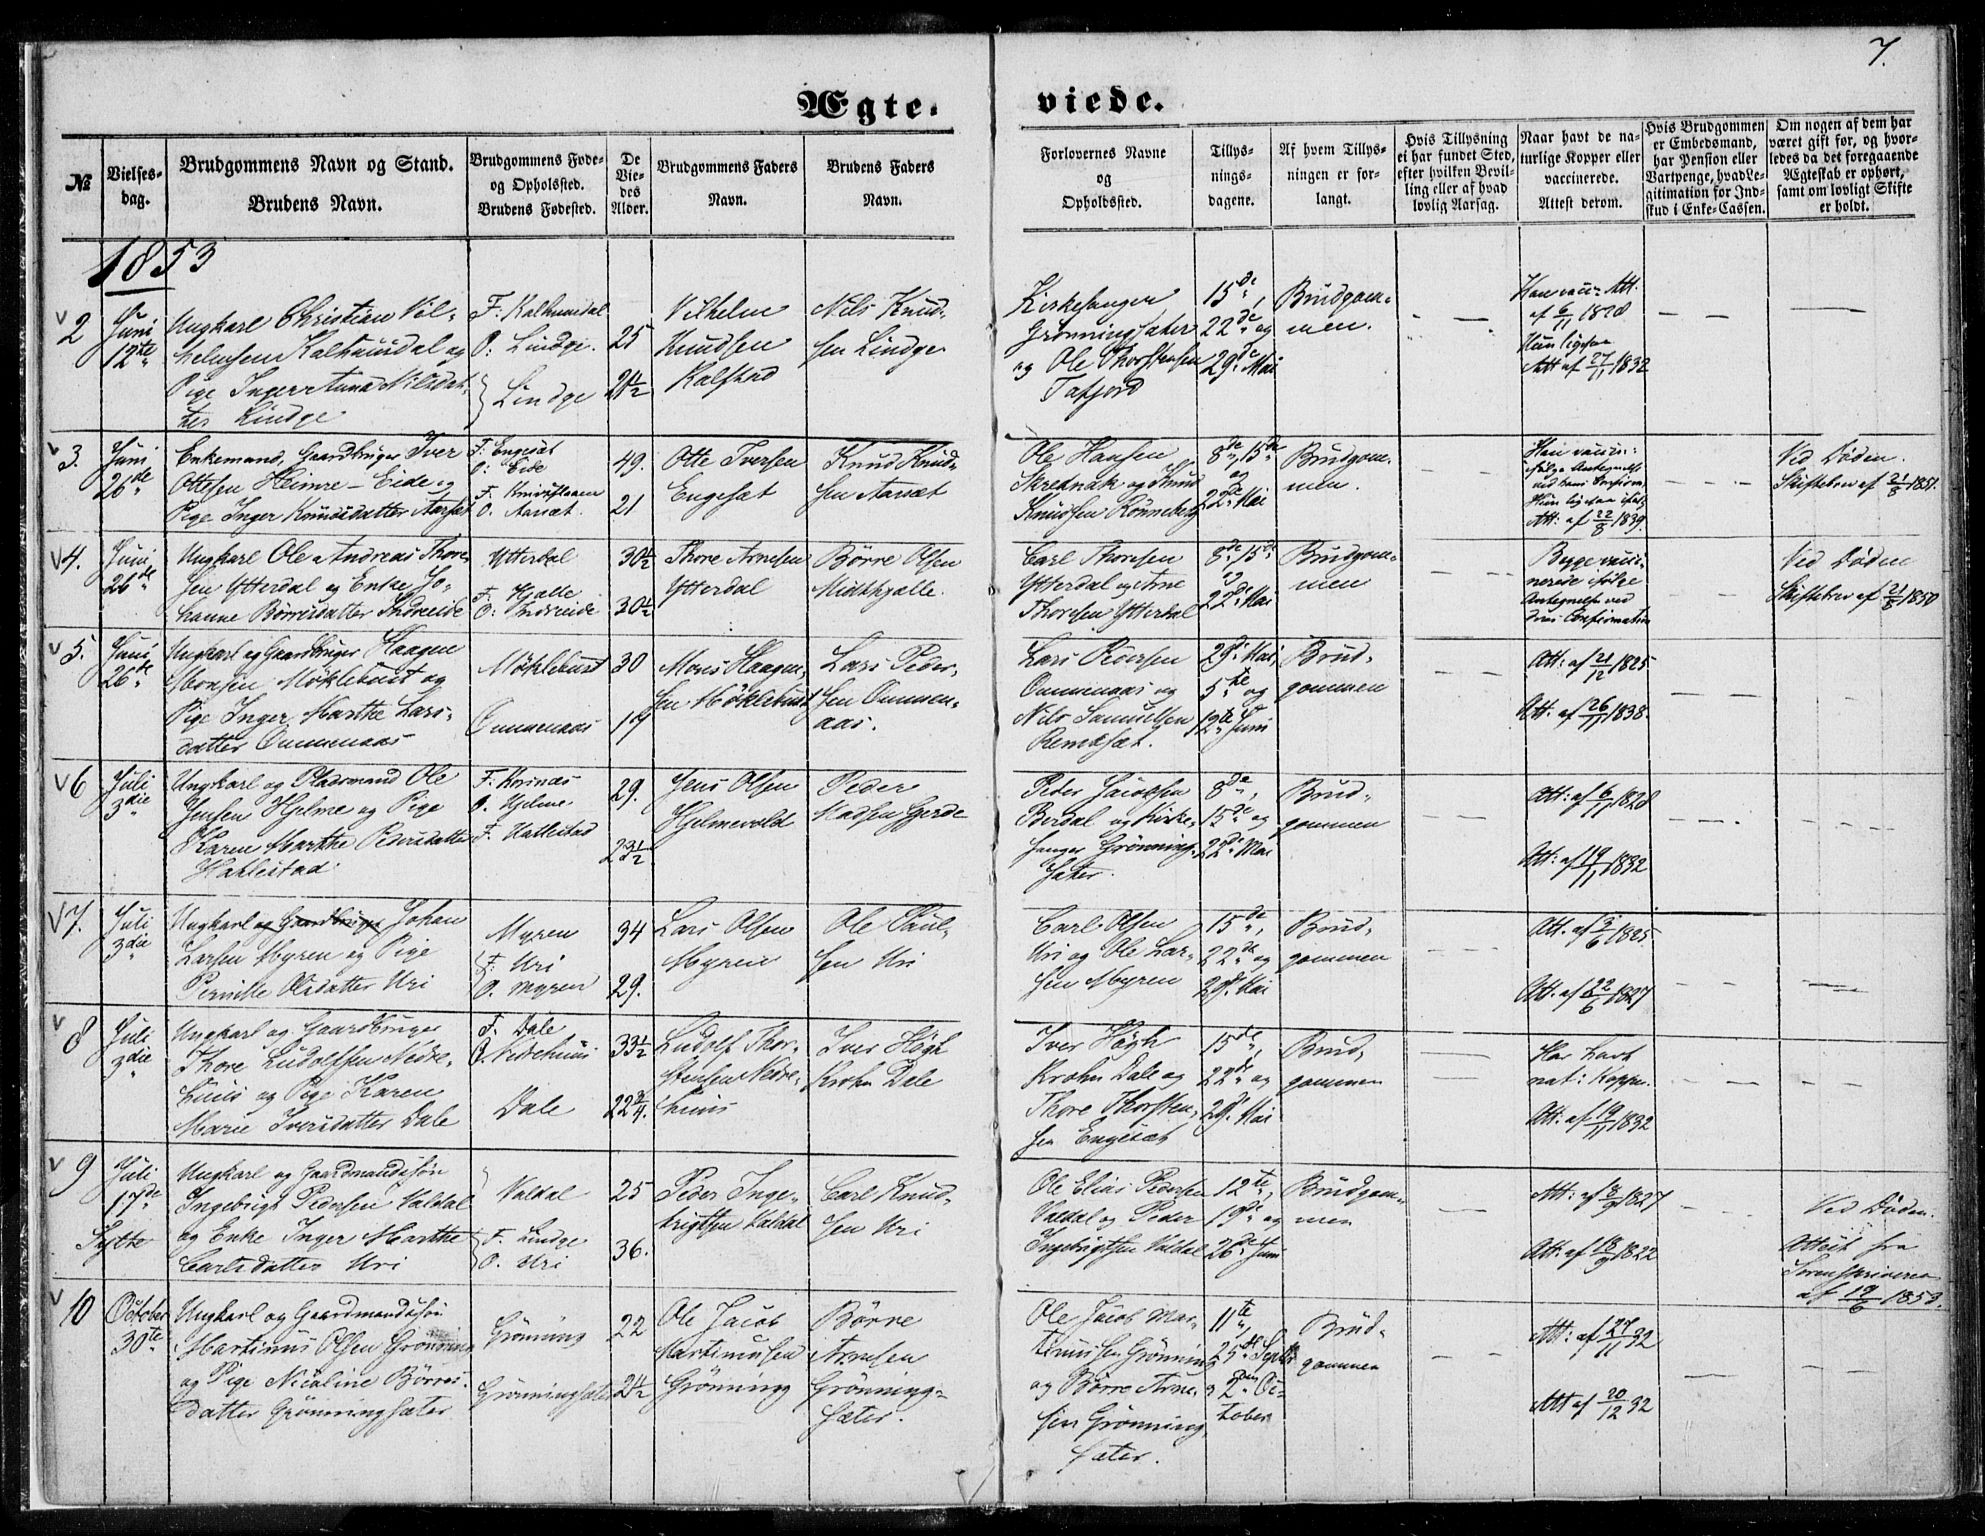 7.
Ægte-
viede.
№
Vielses-
dag.
Brudgommens Navn og Stand.
Brudens Navn.
Brudgommens Føde-
og Opholssted.
Brudens Fødested.
De
Vie-
des
Alder.
Brudgommens Faders
Navn.
Brudens Faders
Navn.
Forlovernes Navne
og
Opholdssted.
Tillys-
nings-
dagene.
Af hvem Tillys-
ningen er for-
langt.
Hvis Tillysning
ei har fundet Sted,
efter hvilken Bevil-
ling eller af hvad
lovlig Aarsag.
Naar havt de na-
turlige Kopper eller
vaccinerede.
Attest derom.
Hvis Brudgommen
er Embedsmand,
har Pension eller
Vartpenge, hvad Le-
gitimation for Ind-
skud i Enke-Cassen.
Om nogen af dem har
været gift før, og hvor-
ledes da det foregaaende
Ægteskab er ophørt,
samt om lovligt Skifte
er holdt.
1853
2
Juni
12te
Ungkarl Christian Vil-
helmsen Kalhusdal og
Pige Inger Anna Nilsdat-
ter Lindge
F. Kalhusdal
O: Lindge.
Lindge
25
24½
Vilhelm
Knudsen
Kalstad
Nils Knud-
sen Lindge
Kirkesanger
Grønningsæter
og Ole Thorstensen
Tafjord
15de,
22de og
29de Mai
Brudgom-
men.
Han vac: Att.
af 6/11 1828
Hun ligesaa
Att af 27/11 1832
3.
Juni
26de
Enkemand, Gaardbruger Iver
Ottesen Heimre-Eide og
Pige Inger Knudsdatter Aarsæt
F: Engesæt
O: Eide
O. Aarsæt.
49.
21
Otte Iversen
Engesæt
Knud Knud-
sen Aarsæt
Ole Hansen
Skrednak og Knud
Knudsen Rønneberg
8de, 15de
og
22de Mai
Brudgom-
men.
Han vacci:
ifølge Antegnelse
ved hans Confirm.
Hun ligesaa ifølg
Att: af 22/8 1839.
Ved Døden.
Skiftebrev af 21/8 1851.
4.
Juni
26de
Ungkarl Ole Andreas Thore-
sen Ytterdal og Enke Jo-
hanne Børresdatter Indreeide
Ytterdal
F. Hjelle
O: Indreeide
30½
30½
Thore Arnesen
Ytterdal
Børre Olsen
Midthjelle.
Carl Thoresen
Ytterdal og Arne
Thoresen Ytterdal
8de, 15de
og
22de Mai
Brudgom-
men
Begge vacci-
nerede ifølge
Antegnelse ved
deres Confirmation
Ved Døden
Skiftebrev af 21/8 1850
5.
Juni
26de
Ungkarl og Gaardbruger Haagen
Monsen Møklebust og
Pige Inger Marthe Lars-
datter Ommenaas
Møklebust
Ommenaas
30
19
Mons Haagen-
sen Møklebust
Lars Peder-
sen Ommen-
aas.
Lars Pedersen
Ommenaas og
Nils Samuelsen
Remesæt.
29de Mai
5te og
12te Juni
Brud-
gommen
Att: af 21/12 1825
Att. af 26/11 1838.
6
Juli
3die
Ungkarl og Pladsmand Ole
Jensen Hjelme og Pige
Karen Marthe Pedersdatter
Hatlestad
F: Korsnæs
O. Hjelme
F. Hatlestad
29.
23½
Jens Olsen
Hjelmevold
Peder
Madsen Gjerde
Peder Jacobsen
Berdal og Kirke-
sanger Grønning-
sæter.
8de,
15de og
22de Mai
Brud-
gommen
Att: af 6/11 1828
Att: af 19/11 1832
7.
Juli
3die
Ungkarl og Gaardbruger Johan
Larsen Myren og Pige
Pernille Olsdatter Uri
Myren
F. Uri
O. Myren
34
29.
Lars Olsen
Myren
Ole Paul-
sen Uri
Carl Olsen
Uri og Ole Lar-
sen Myren
15de,
22de og
29de Mai
Brud-
gommen
Att. af 3/6 1825
Att. af 22/6 1827
8
Juli
3die
Ungkarl og Gaardbruger
Thore Ludolfsen Nedre-
huus og Pige Karen
Marie Iversdatter Dale
F. Dale
O. Nedrehuus
Dale
33½
22¾.
Ludolf Thor-
stensen Nedre-
huus
Iver Høgh
Krohn Dale
Iver Høgh
Krohn Dale og
Thore Thorsten-
sen Engesæt
15de,
22de og
29de Mai
Brud-
gommen
Har havt
nat: Kopper.
Att: af 19/11 1832
9
Juli
17de
Sylte
Ungkarl og Gaardmandssøn
Ingebrigt Pedersen Valdal
og Enke Inger Marthe
Carlsdatter Uri
Valdal
F. Lindge
O. Uri
25
36.
Peder Inge-
brigtsen Valdal
Carl Knud-
sen Uri
Ole Elias Pedersen
Valdal og Peder
Ingebrigtsen Valdal
12te,
19de og
26de Juni
Brudgom-
men
Att: af 18/9 1827
Att: af 18/9 1822
Ved Døden.
Attest fra
Sorenskriveren
af 19/6 1853.
10
October
30te
Ungkarl og Gaardmandssøn
Martinus Olsen Grønning
og Pige Nicoline Børres-
datter Grønningsæter
Grønning
Grønningsæter
22
24½
Ole Jacob
Martinussen
Grønning
Børre
Arnesen
Grønning-
sæter.
Ole Jacob Mar-
tinussen Grønning
og Børre Arne-
sen Grønning-
sæter.
11te,
25de Septbr
og 2den Oc-
tober
Brud-
gommen
Att: af 27/11 32
Att af 20/12 32